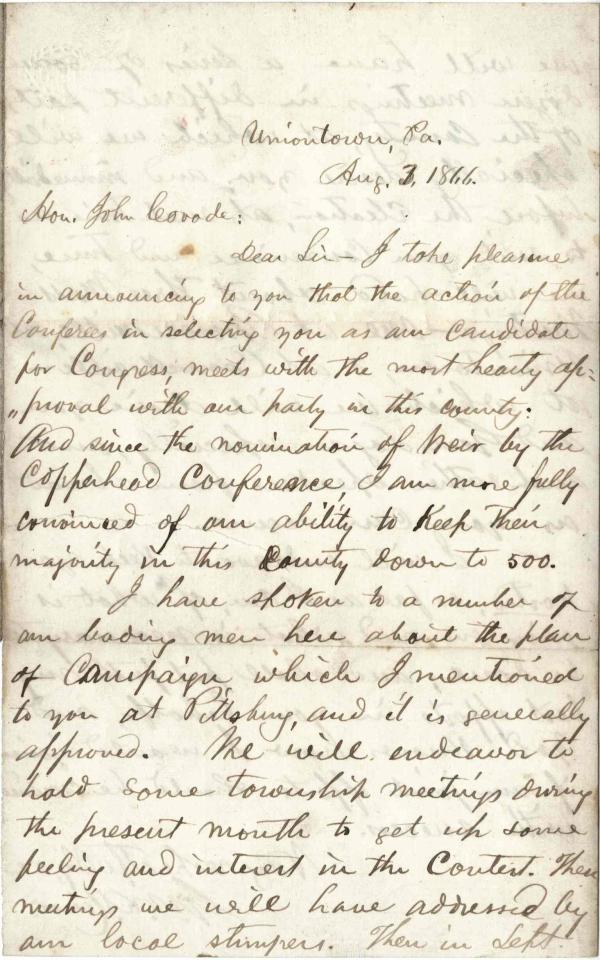 Uniontown, Pa.
Aug. 3, 1866.
Hon. John Covode:
Dear Sir – I take pleasure
in announcing to you that the action of the
Conferees in selecting you as our candidate
for Congress, meets with the most hearty ap=
„proval with our party in this county.
And since the nomination of Weir by the
Copperhead Conference, I am more fully
convinced of our ability to Keep their
majority in this County down to 500.
I have spoken to a number of
our leading men here about the plan
of Campaign which I mentioned
to you at Pittsburg, and it is generally
approved. We will endeavor to
hold some township meetings during
the present month to get up some
feeling and interest in the Contest. These
meetings we will have addressed by
our local stumpers. Then in Sept.